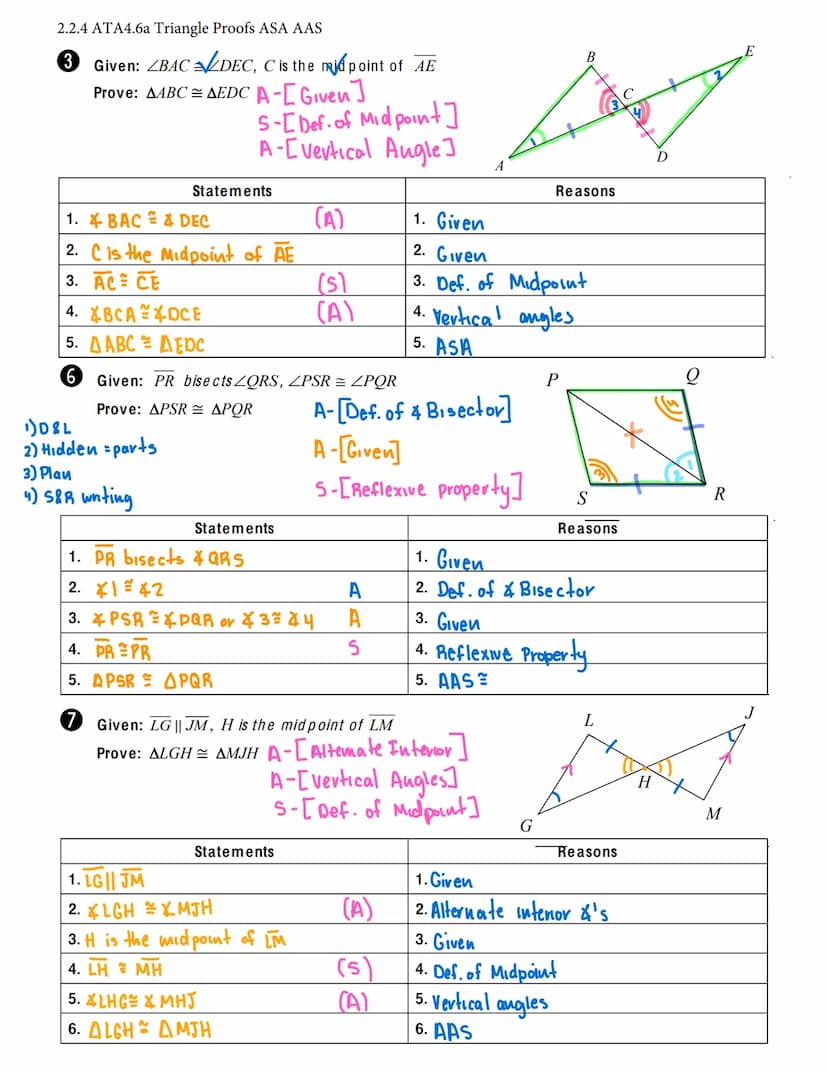 2.2.4 ATA4.6a Triangle Proofs ASA AAS
3 Given: ∠BAC ≅ ∠DEC, C is the midpoint of AE
Prove: ΔABC ≅ ΔEDC A-[Given]
S-[Def. of Midpoint]
A-[Vertical Angle]
B
E
C
A
D
1
2
3
4
Statements Reasons
1. ∡BAC ≅ ∡DEC (A) 1. Given
2. C is the Midpoint of AE 2. Given
3. AC ≅ CE (S) 3. Def. of Midpoint
4. ∡BCA ≅ ∡DCE (A) 4. Vertical angles
5. ΔABC ≅ ΔEDC 5. ASA
6 Given: PR bisects ∠QRS, ∠PSR ≅ ∠PQR
Prove: ΔPSR ≅ ΔPQR A-[Def. of ∡ Bisector]
A-[Given]
S-[Reflexive property]
1) D&L
2) Hidden = parts
3) Plan
4) S&R writing
P
Q
S
R
1
2
3
4
Statements Reasons
1. PR bisects ∡QRS 1. Given
2. ∡1 ≅ ∡2 A 2. Def. of ∡ Bisector
3. ∡PSR ≅ ∡PQR or ∡3 ≅ ∡4 A 3. Given
4. PR ≅ PR S 4. Reflexive Property
5. ΔPSR ≅ ΔPQR 5. AAS ≅
7 Given: LG || JM, H is the midpoint of LM
Prove: ΔLGH ≅ ΔMJH A-[Alternate Interior]
A-[Vertical Angles]
S-[Def. of Midpoint]
L
J
H
G
M
Statements Reasons
1. LG || JM 1. Given
2. ∡LGH ≅ ∡MJH (A) 2. Alternate interior ∡'s
3. H is the midpoint of LM 3. Given
4. LH ≅ MH (S) 4. Def. of Midpoint
5. ∡LHG ≅ ∡MHJ (A) 5. Vertical angles
6. ΔLGH ≅ ΔMJH 6. AAS